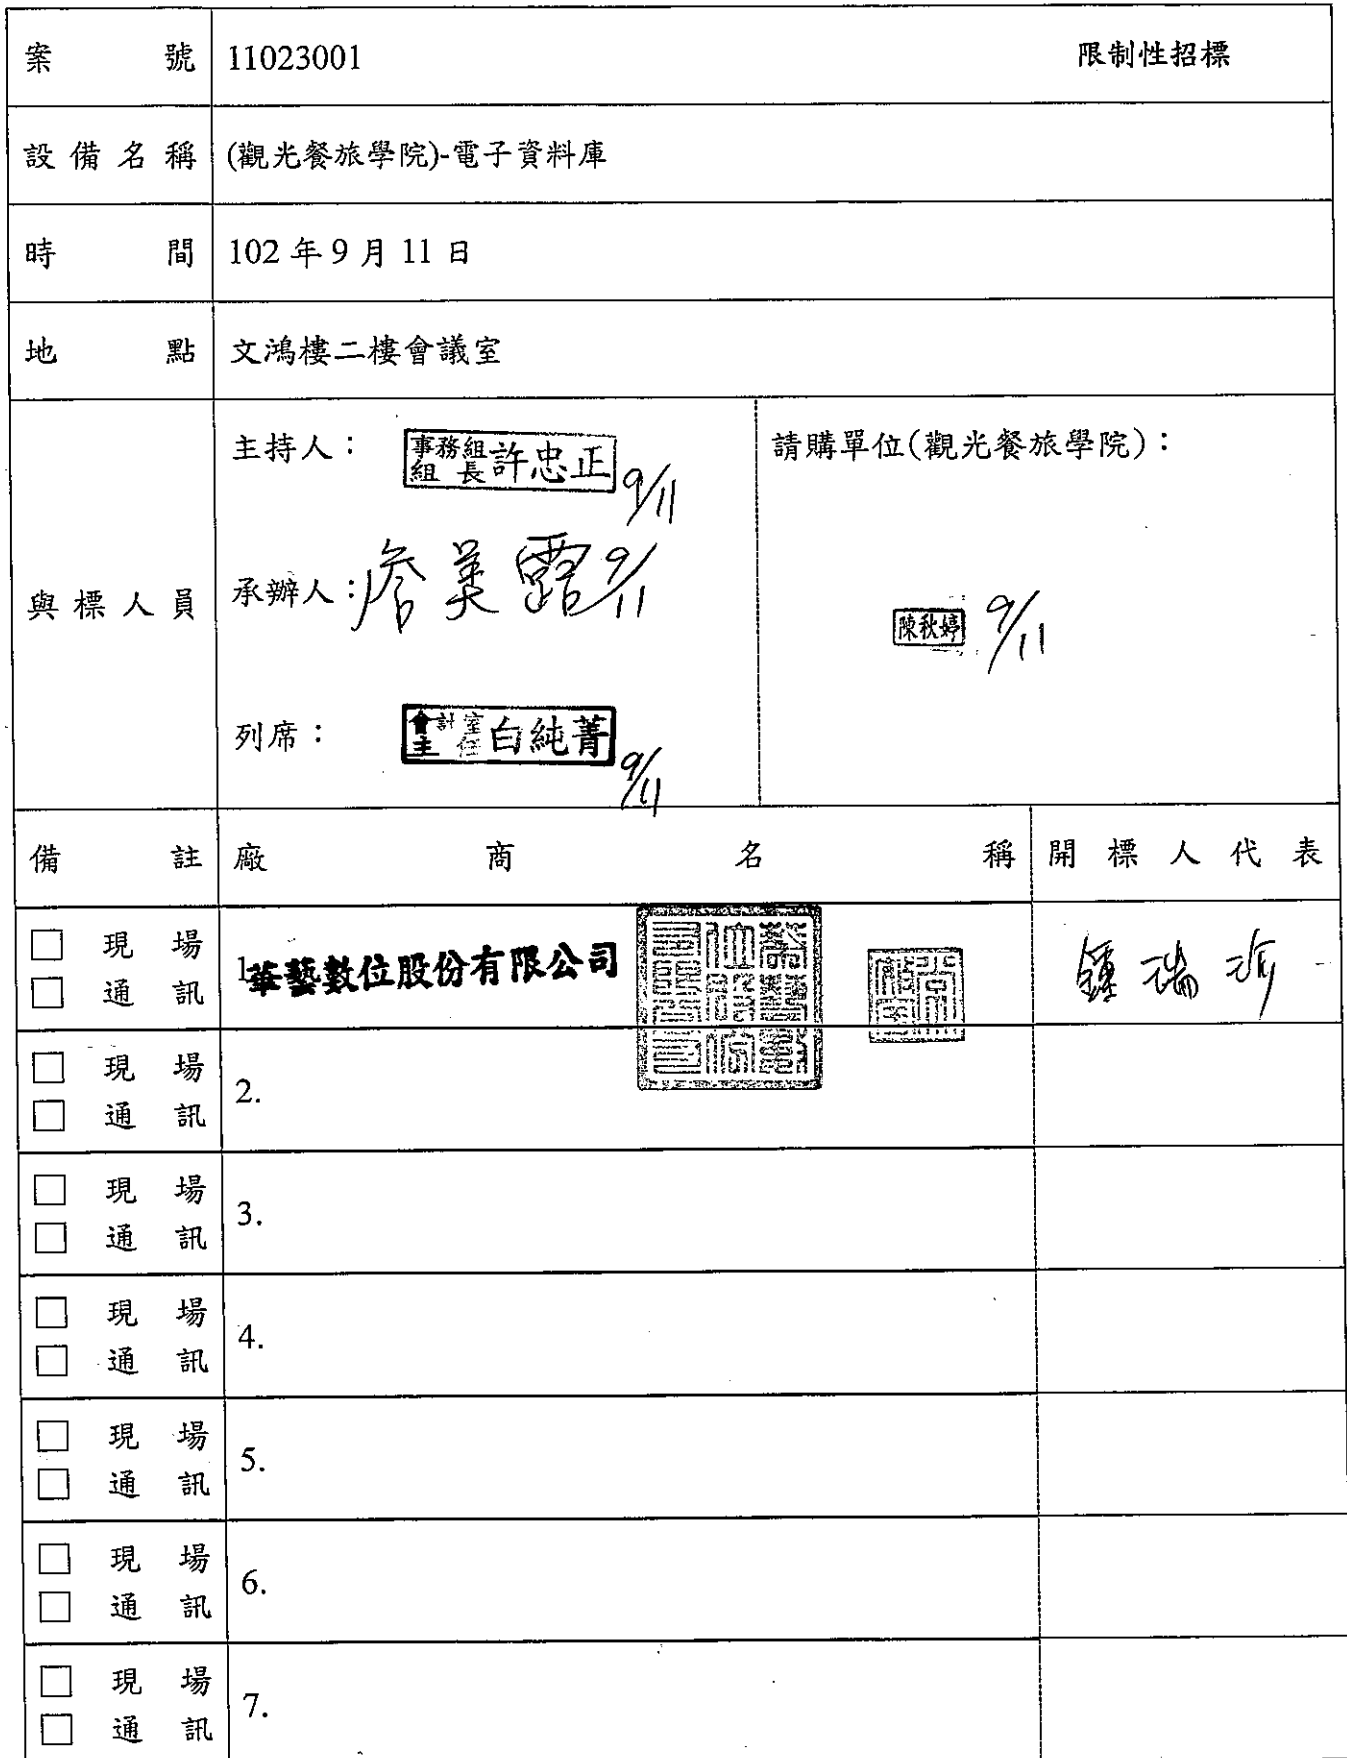 案號 11023001 限制性招標
設備名稱 (觀光餐旅學院)-電子資料庫
時間 102 年 9 月 11 日
地點 文鴻樓二樓會議室
與標人員
主持人： 事務組組長 許忠正 9/11
承辦人： 詹美露 9/11
列席： 會計室主任 白純菁 9/11
請購單位(觀光餐旅學院)：
陳秋婷 9/11
備註 廠商名稱 開標人代表
□ 現場
□ 通訊
1. 華藝數位股份有限公司 鍾瑞珍
□ 現場
□ 通訊
2.
□ 現場
□ 通訊
3.
□ 現場
□ 通訊
4.
□ 現場
□ 通訊
5.
□ 現場
□ 通訊
6.
□ 現場
□ 通訊
7.